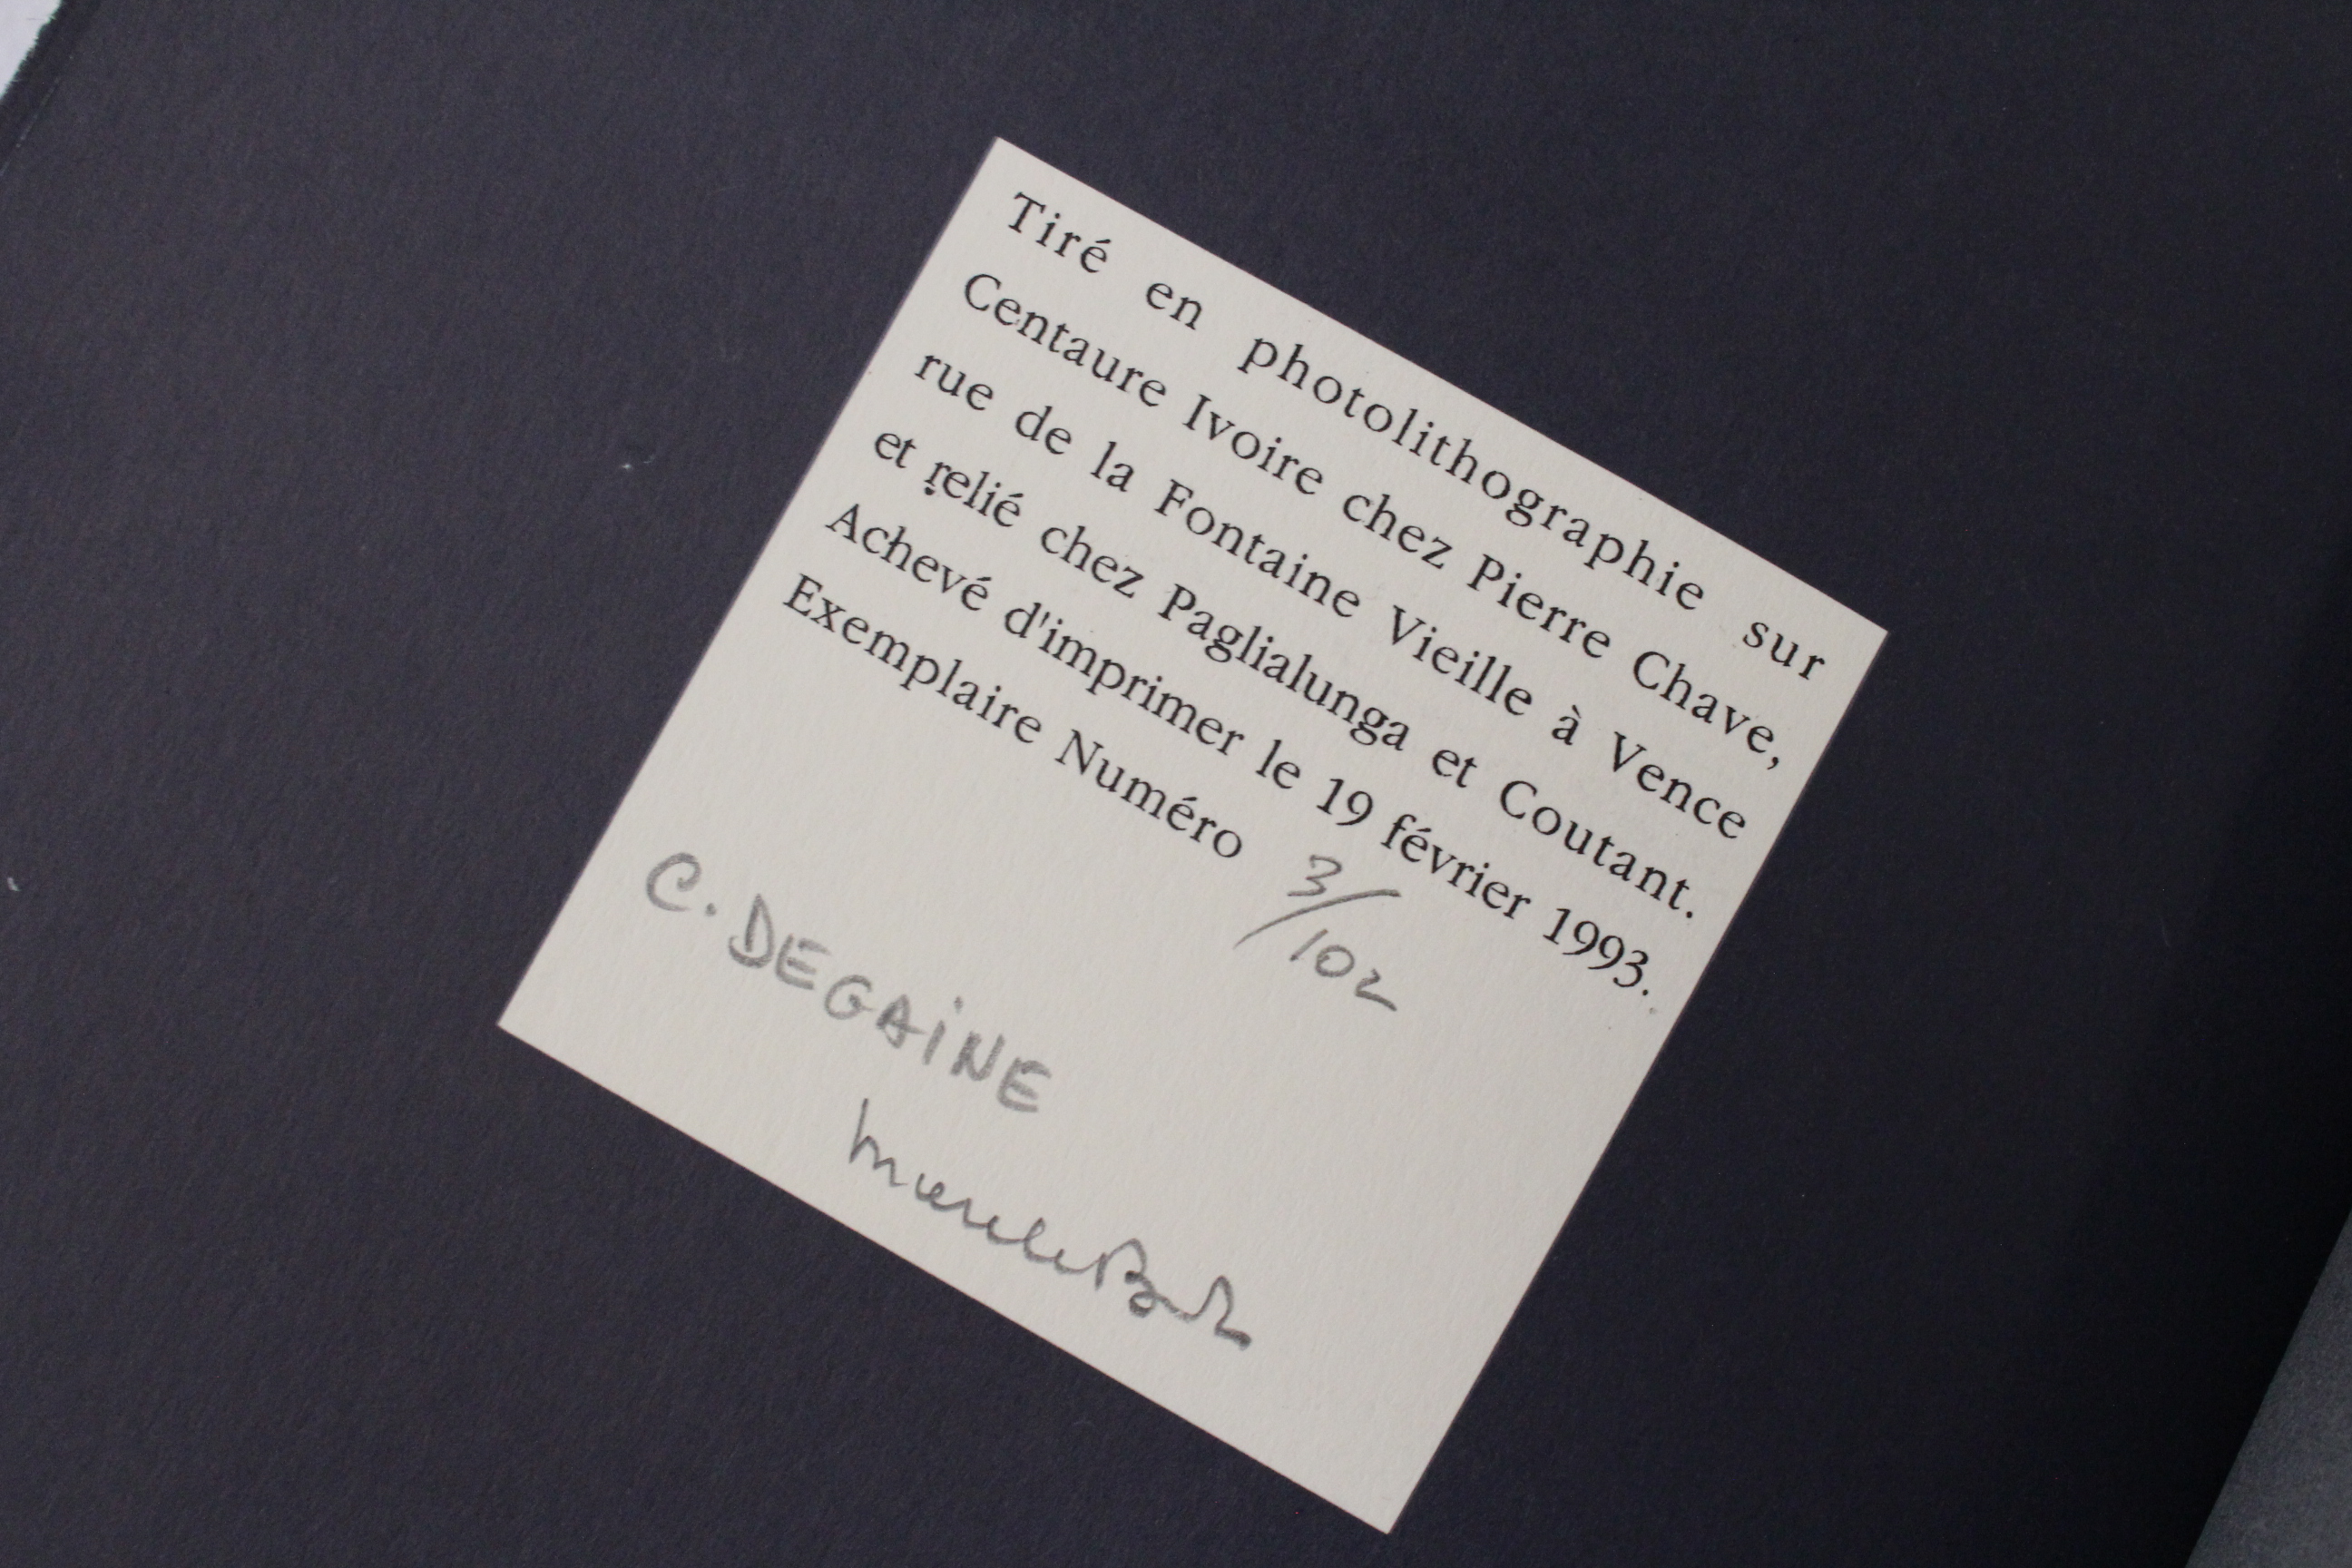 Tiré en photolithographie sur
Centaure Ivoire chez Pierre Chave,
rue de la Fontaine Vieille à Vence
et relié chez Paglialunga et Coutant.
Achevé d'imprimer le 19 février 1993.
Exemplaire Numéro 3/102
C. DEGAINE